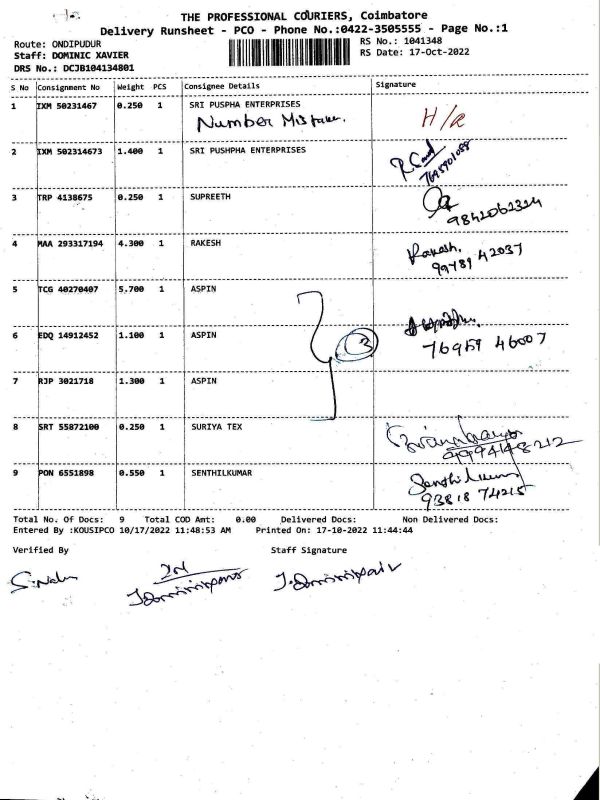 THE PROFESSIONAL COURIERS, Coimbatore
Delivery Runsheet - PCO - Phone No.:0422-3505555 - Page No.:1
Route: ONDIPUDUR
Staff: DOMINIC XAVIER
DRS No.: DCJB104134801
RS No.: 1041348
RS Date: 17-Oct-2022
S No Consignment No Weight PCS Consignee Details Signature
1 IXM 50231467 0.250 1 SRI PUSPHA ENTERPRISES
Number Mistake. H/R
2 IXM 502314673 1.400 1 SRI PUSHPHA ENTERPRISES
7695901088
3 TRP 4138675 0.250 1 SUPREETH
9842062324
4 MAA 293317194 4.300 1 RAKESH Rakesh.
99789 42037
5 TCG 40270407 5.700 1 ASPIN
6 EDQ 14912452 1.100 1 ASPIN 3
76959 46007
7 RJP 3021718 1.300 1 ASPIN
8 SRT 55872100 0.250 1 SURIYA TEX
9994148212
9 PON 6551898 0.550 1 SENTHILKUMAR Senthilkumar
93818 74215
Total No. Of Docs: 9 Total COD Amt: 0.00 Delivered Docs: Non Delivered Docs:
Entered By :KOUSIPCO 10/17/2022 11:48:53 AM Printed On: 17-10-2022 11:44:44
Verified By Staff Signature